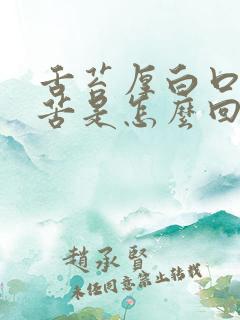 舌苔厚白口
苦是怎麼回
趙承賢
未经同意禁止转载